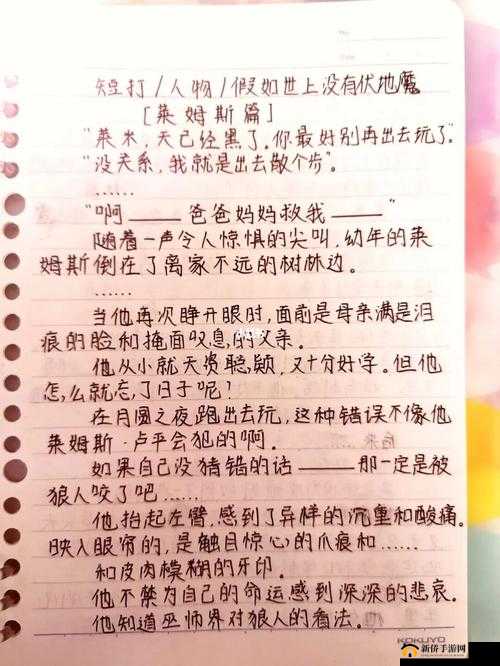 短打/人物/假如世上没有伏地魔
[莱姆斯篇]
"莱木,天已经黑了,你最好别再出去玩了"
"没关系,我就是出去散个步"。
......
"啊——爸爸妈妈救我——"
随着一声令人惊惧的尖叫,幼年的莱
姆斯倒在了离家不远的树林边。
......
当他再次睁开眼时,面前是母亲满是泪
痕的脸和掩面叹息的父亲.
他从小就天资聪颖,又十分好学。但他
怎么就忘了日子呢!
在月圆之夜跑出去玩,这种错误不像他
莱姆斯·卢平会犯的啊.
如果自己没猜错的话——那一定是被
狼人咬了吧......
他抬起左臂,感到了异样的沉重和酸痛。
映入眼帘的,是触目惊心的爪痕和......
和皮肉模糊的牙印.
他不禁为自己的命运感到深深的悲哀.
他知道巫师界对狼人的看法.
KOKUYO
新侨手游网